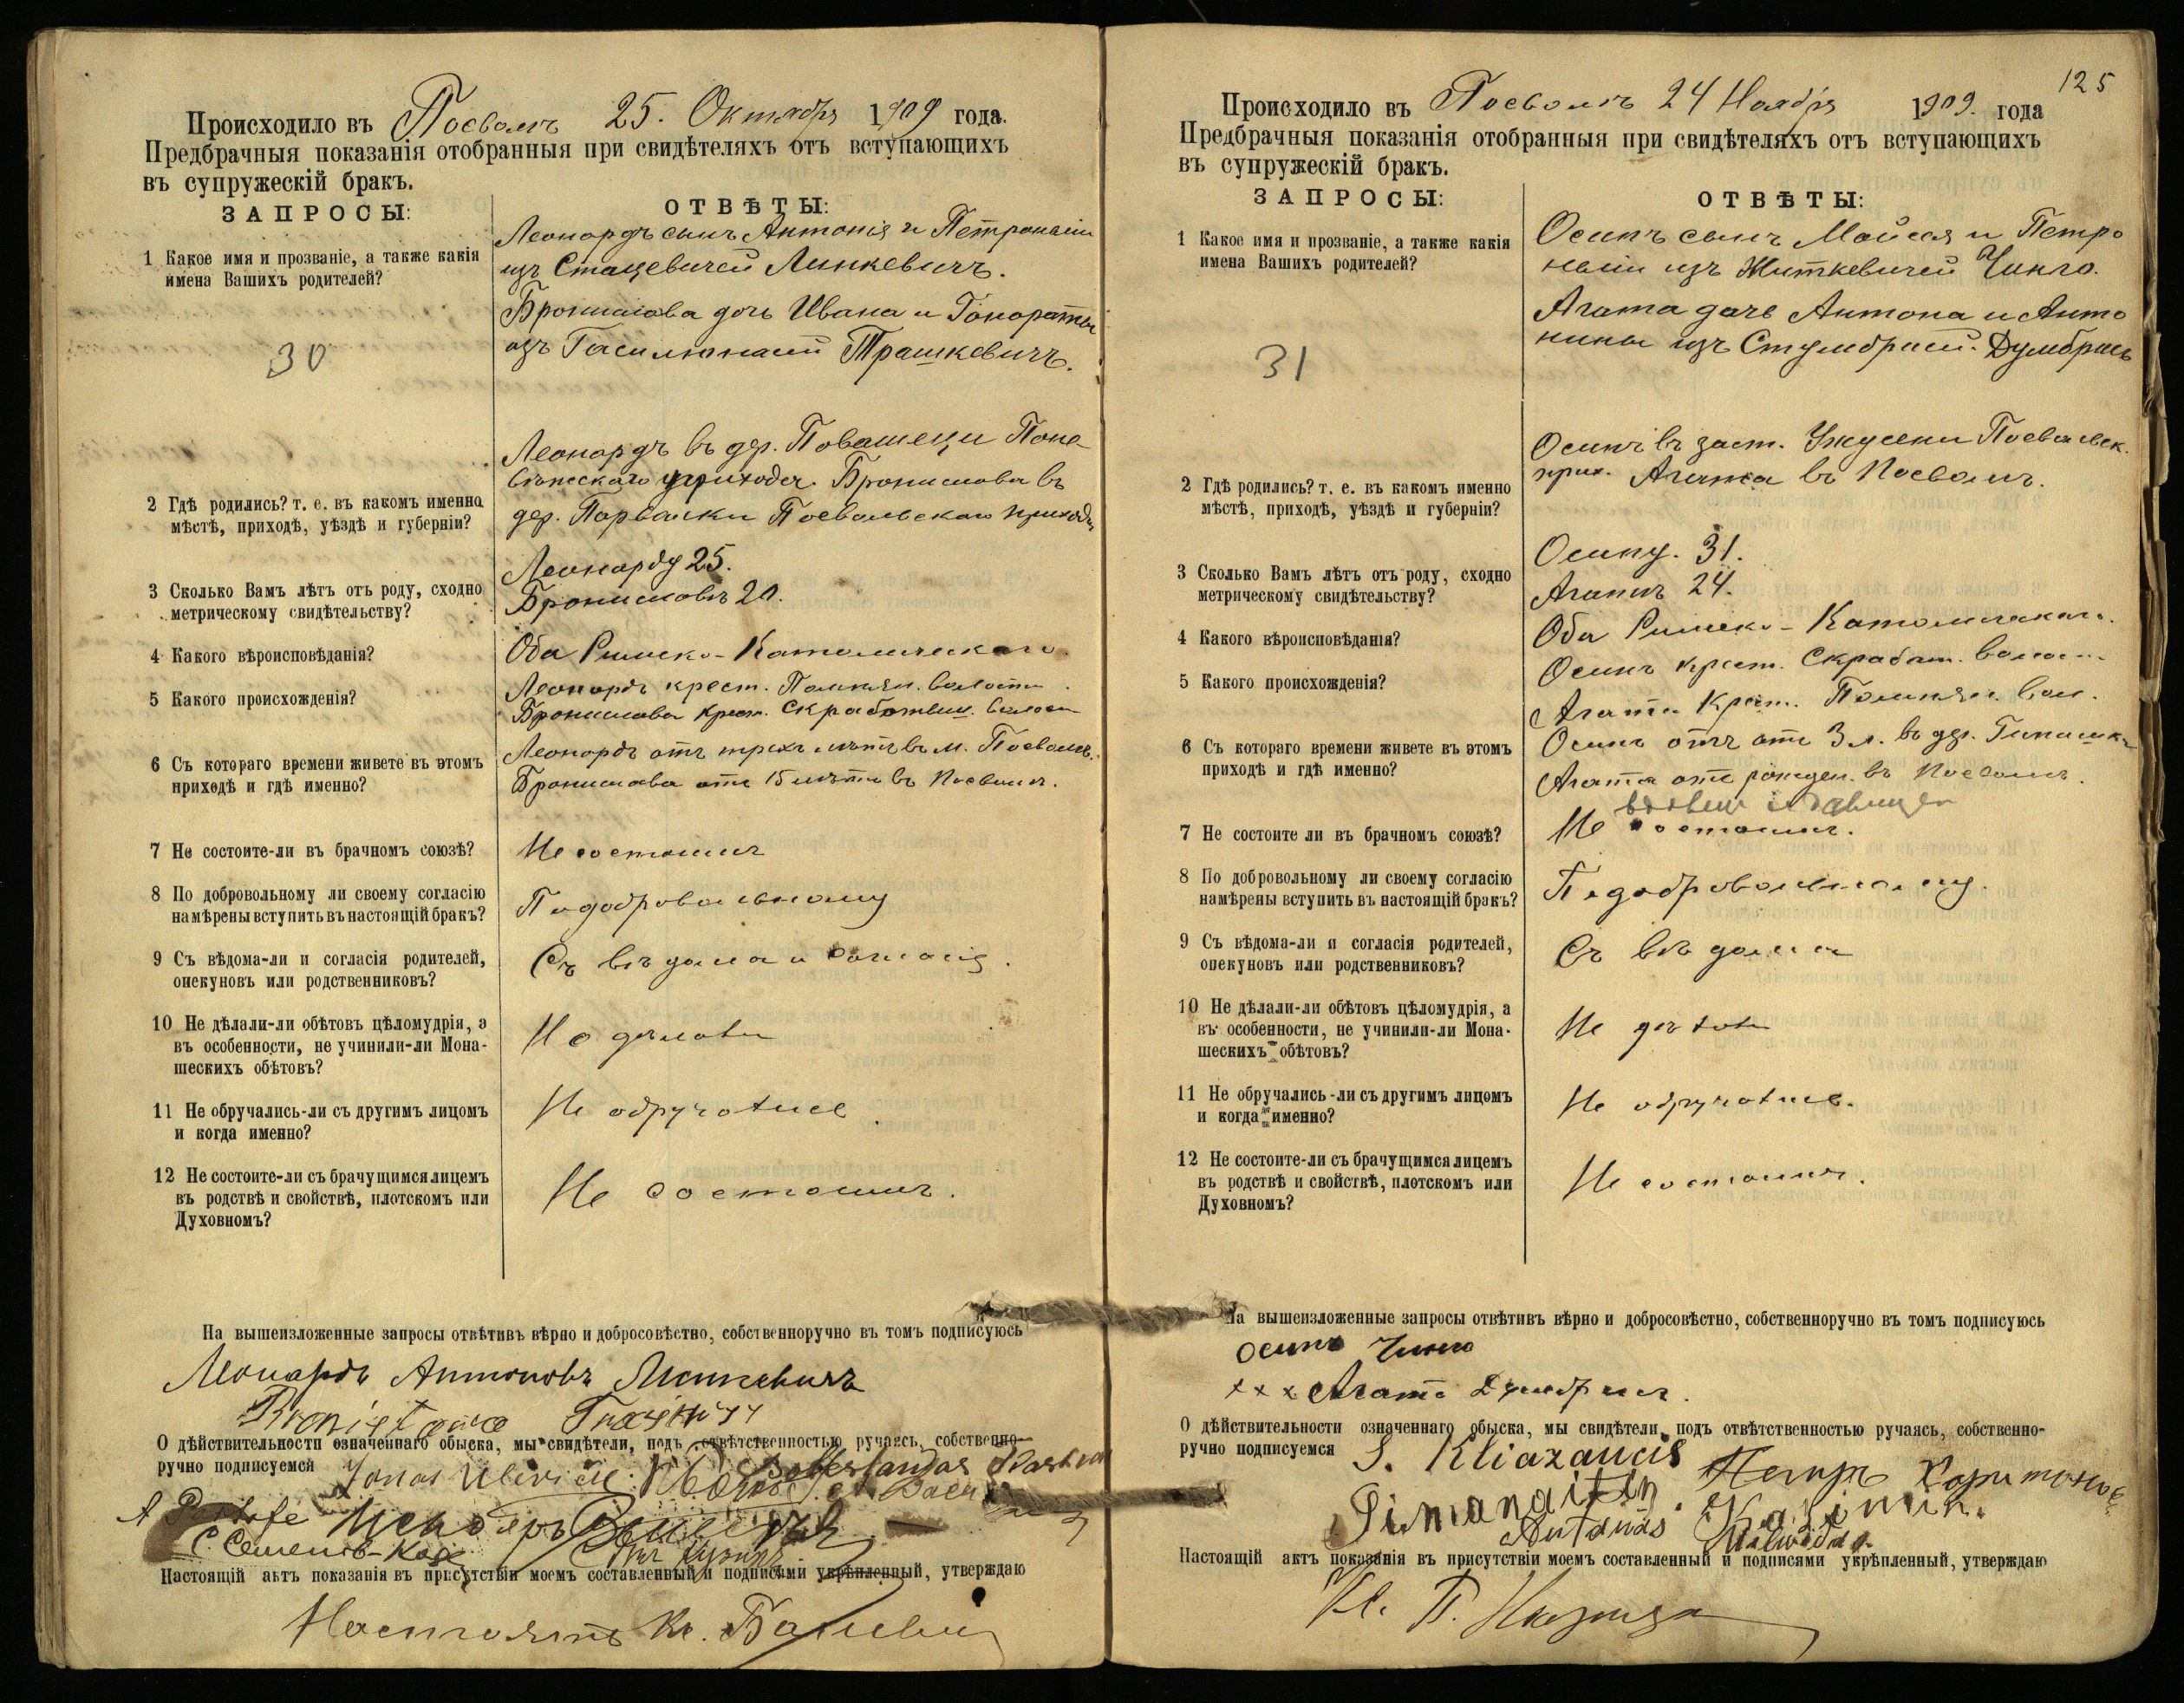 Происходило въ Посволѣ 25. Октября 1909 года.
Предбрачныя показанія отобранныя при свидѣтеляхъ отъ вступающихъ
въ супружескій бракъ.
ЗАПРОСЫ:
ОТВѢТЫ:
1 Какое имя и прозваніе, а также какія
имена Вашихъ родителей?
Леонардъ сынъ Антонія и Петронеліи
изъ Стацевичей Линкевичъ.
Брониславa дочь Ивана и Гонораты
изъ Трашкевичъ.
30
2 Гдѣ родились? т. е. въ какомъ именно
мѣстѣ, приходѣ, уѣздѣ и губерніи?
Леонардъ въ дер. Поне-
вѣжскаго прихода. Бронислава въ
дер. Посвольскаго прихода
3 Сколько Вамъ лѣтъ отъ роду, сходно
метрическому свидѣтельству?
Леонарду 25.
Брониславѣ 20.
4 Какого вѣроисповѣданія?
Оба Римско-Католическаго.
5 Какого происхожденія?
Леонардъ крест. волости.
Бронислава крест. Скрабатыш. волости
6 Съ котораго времени живете въ этомъ
приходѣ и гдѣ именно?
Леонардъ отъ трехъ лѣтъ въ м. Посволѣ.
Бронислава отъ 15 лѣтъ въ Посволѣ.
7 Не состоите-ли въ брачномъ союзѣ?
Не состоимъ
8 По добровольному ли своему согласію
намѣрены вступить въ настоящій бракъ?
По добровольному
9 Съ вѣдома-ли и согласія родителей,
опекуновъ или родственниковъ?
Съ вѣдома и согласія.
10 Не дѣлали-ли обѣтовъ цѣломудрія, а
въ особенности, не учинили-ли Мона-
шескихъ обѣтовъ?
Не дѣлали
11 Не обручались-ли съ другимъ лицомъ
и когда именно?
Не обручались
12 Не состоите-ли съ брачущимся лицемъ
въ родствѣ и свойствѣ, плотскомъ или
Духовномъ?
Не состоимъ.
На вышеизложенные запросы отвѣтивъ вѣрно и добросовѣстно, собственноручно въ томъ подписуюсь
Леонардъ Антоновъ Линкевичъ
Bronisława
О дѣйствительности означеннаго обыска, мы свидѣтели, подъ отвѣтственностью ручаясь, собственно-
ручно подписуемся Jonas
Настоящій актъ показанія въ присутствіи моемъ составленный и подписями укрѣпленный, утверждаю
Настоятель Кс.
125
Происходило въ Посволѣ 24 Ноября 1909. года
Предбрачныя показанія отобранныя при свидѣтеляхъ отъ вступающихъ
въ супружескій бракъ.
ЗАПРОСЫ:
ОТВѢТЫ:
1 Какое имя и прозваніе, а также какія
имена Вашихъ родителей?
Осипъ сынъ Мойсея и Петро
неліи изъ Житкевичей Чинго.
Агата дочь Антона и Анто
нины изъ Думбрисъ
31
2 Гдѣ родились? т. е. въ какомъ именно
мѣстѣ, приходѣ, уѣздѣ и губерніи?
Осипъ въ заст. Посвольск.
прих. Агата въ Посволѣ.
3 Сколько Вамъ лѣтъ отъ роду, сходно
метрическому свидѣтельству?
Осипу. 31.
Агатѣ 24.
4 Какого вѣроисповѣданія?
Оба Римско-Католическаго.
5 Какого происхожденія?
Осипъ крест. Скрабат. волости
Агата Крест. вол.
6 Съ котораго времени живете въ этомъ
приходѣ и гдѣ именно?
Осипъ отъ 3 л. въ дер.
Агата отъ рожден. въ Посволѣ.
7 Не состоите ли въ брачномъ союзѣ?
Не состоимъ.
8 По добровольному ли своему согласію
намѣрены вступить въ настоящій бракъ?
По добровольному.
9 Съ вѣдома-ли и согласія родителей,
опекуновъ или родственниковъ?
Съ вѣдома
10 Не дѣлали-ли обѣтовъ цѣломудрія, а
въ особенности, не учинили-ли Мона-
шескихъ обѣтовъ?
Не дѣлали
11 Не обручались-ли съ другимъ лицомъ
и когда именно?
Не обручались.
12 Не состоите-ли съ брачущимся лицемъ
въ родствѣ и свойствѣ, плотскомъ или
Духовномъ?
Не состоимъ.
На вышеизложенные запросы отвѣтивъ вѣрно и добросовѣстно, собственноручно въ томъ подписуюсь
осипъ Чинго
х х х Агата Думбрисъ.
О дѣйствительности означеннаго обыска, мы свидѣтели, подъ отвѣтственностью ручаясь, собственно-
ручно подписуемся S. Kliazaucis
Antanas
Настоящій актъ показанія въ присутствіи моемъ составленный и подписями укрѣпленный, утверждаю
Кс. П.